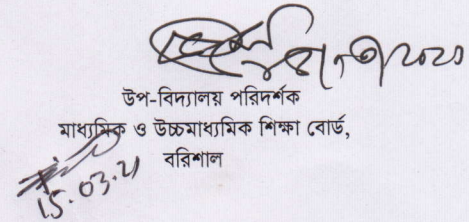 উপ-বিদ্যালয় পরিদর্শক
মাধ্যমিক ও উচ্চমাধ্যমিক শিক্ষা বোর্ড,
বরিশাল
15.03.21